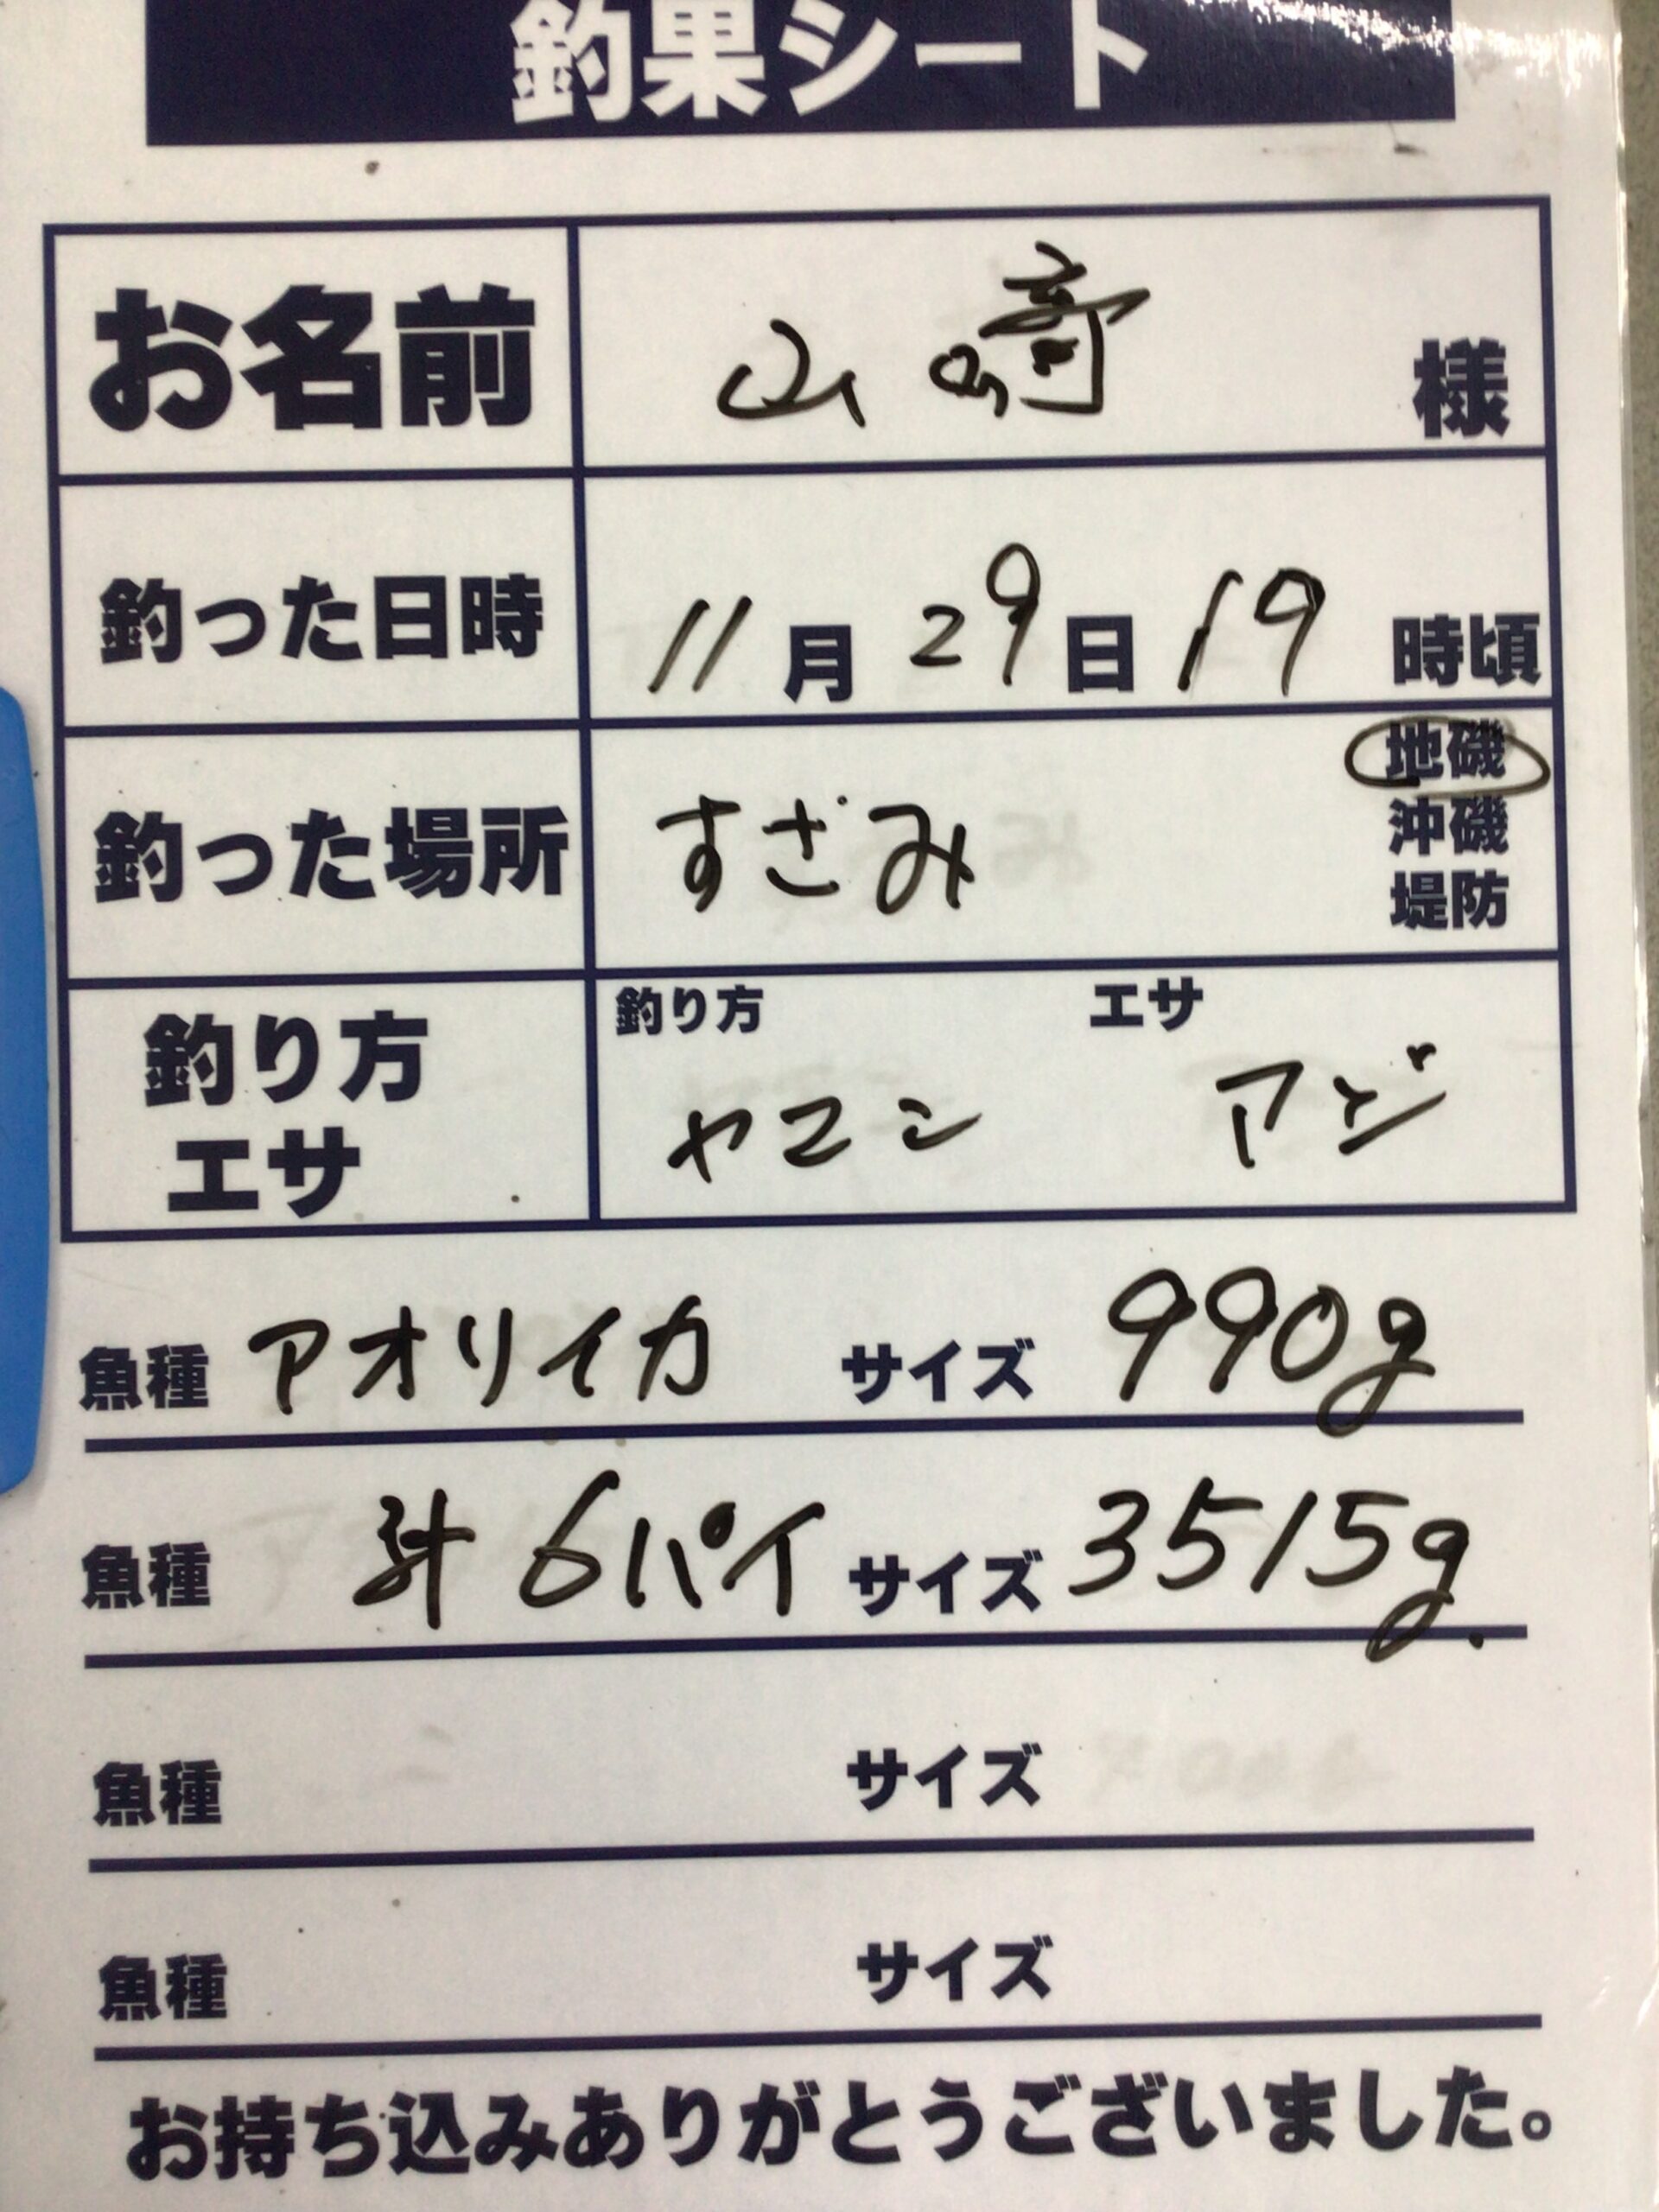 釣果シート
お名前 山﨑 様
釣った日時 11月29日19時頃
地磯
釣った場所 すさみ
沖磯
堤防
釣り方 エサ
釣り方
エサ
ヤエン アジ
魚種 アオリイカ サイズ 990g
魚種 計6パイ サイズ 3515g.
魚種 サイズ
魚種 サイズ
お持ち込みありがとうございました。